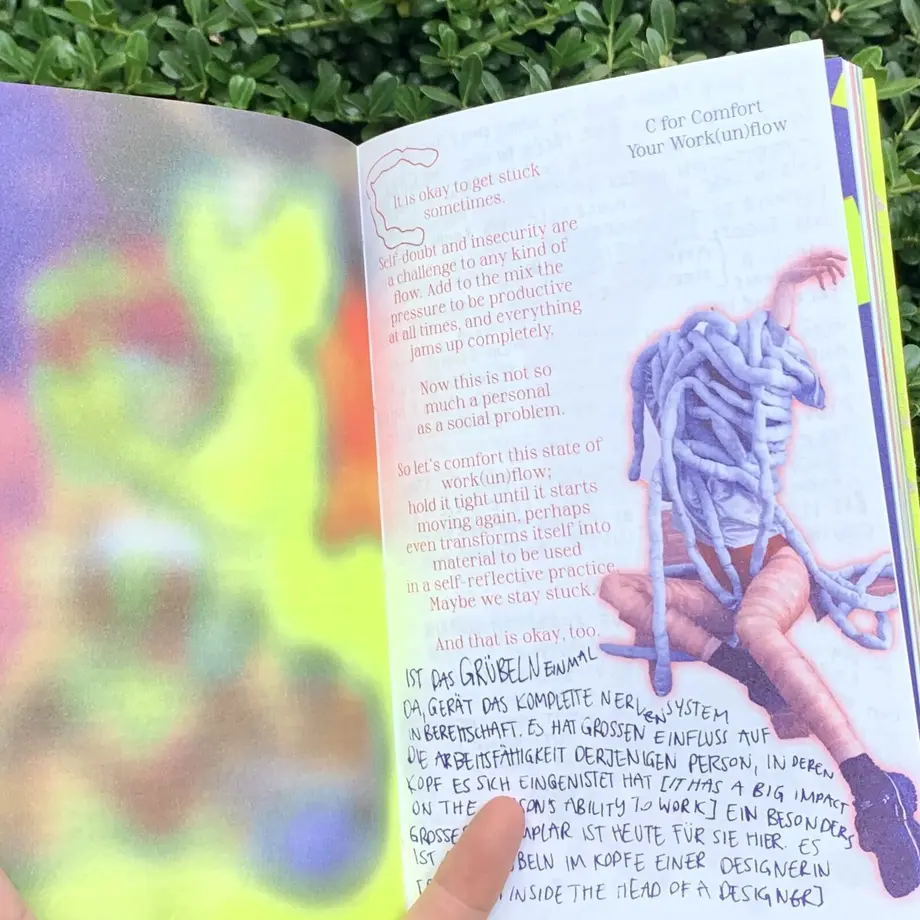 C for Comfort
Your Work(un)flow
It is okay to get stuck
sometimes.
Self-doubt and insecurity are
a challenge to any kind of
flow. Add to the mix the
pressure to be productive
at all times, and everything
jams up completely.
Now this is not so
much a personal
as a social problem.
So let's comfort this state of
work(un)flow;
hold it tight until it starts
moving again, perhaps
even transforms itself into
material to be used
in a self-reflective practice.
Maybe we stay stuck.
And that is okay, too.
IST DAS GRÜBELN EINMAL
DA, GERÄT DAS KOMPLETTE NERVENSYSTEM
IN BEREITSCHAFT. ES HAT GROSSEN EINFLUSS AUF
DIE ARBEITSFÄHIGKEIT DERJENIGEN PERSON, IN DEREN
KOPF ES SICH EINGENISTET HAT [IT HAS A BIG IMPACT
ON THE ABILITY TO WORK] EIN BESONDERS
IST HEUTE FÜR SIE HIER. ES
IST IM KOPFE EINER DESIGNERIN
INSIDE THE HEAD OF A DESIGNER]